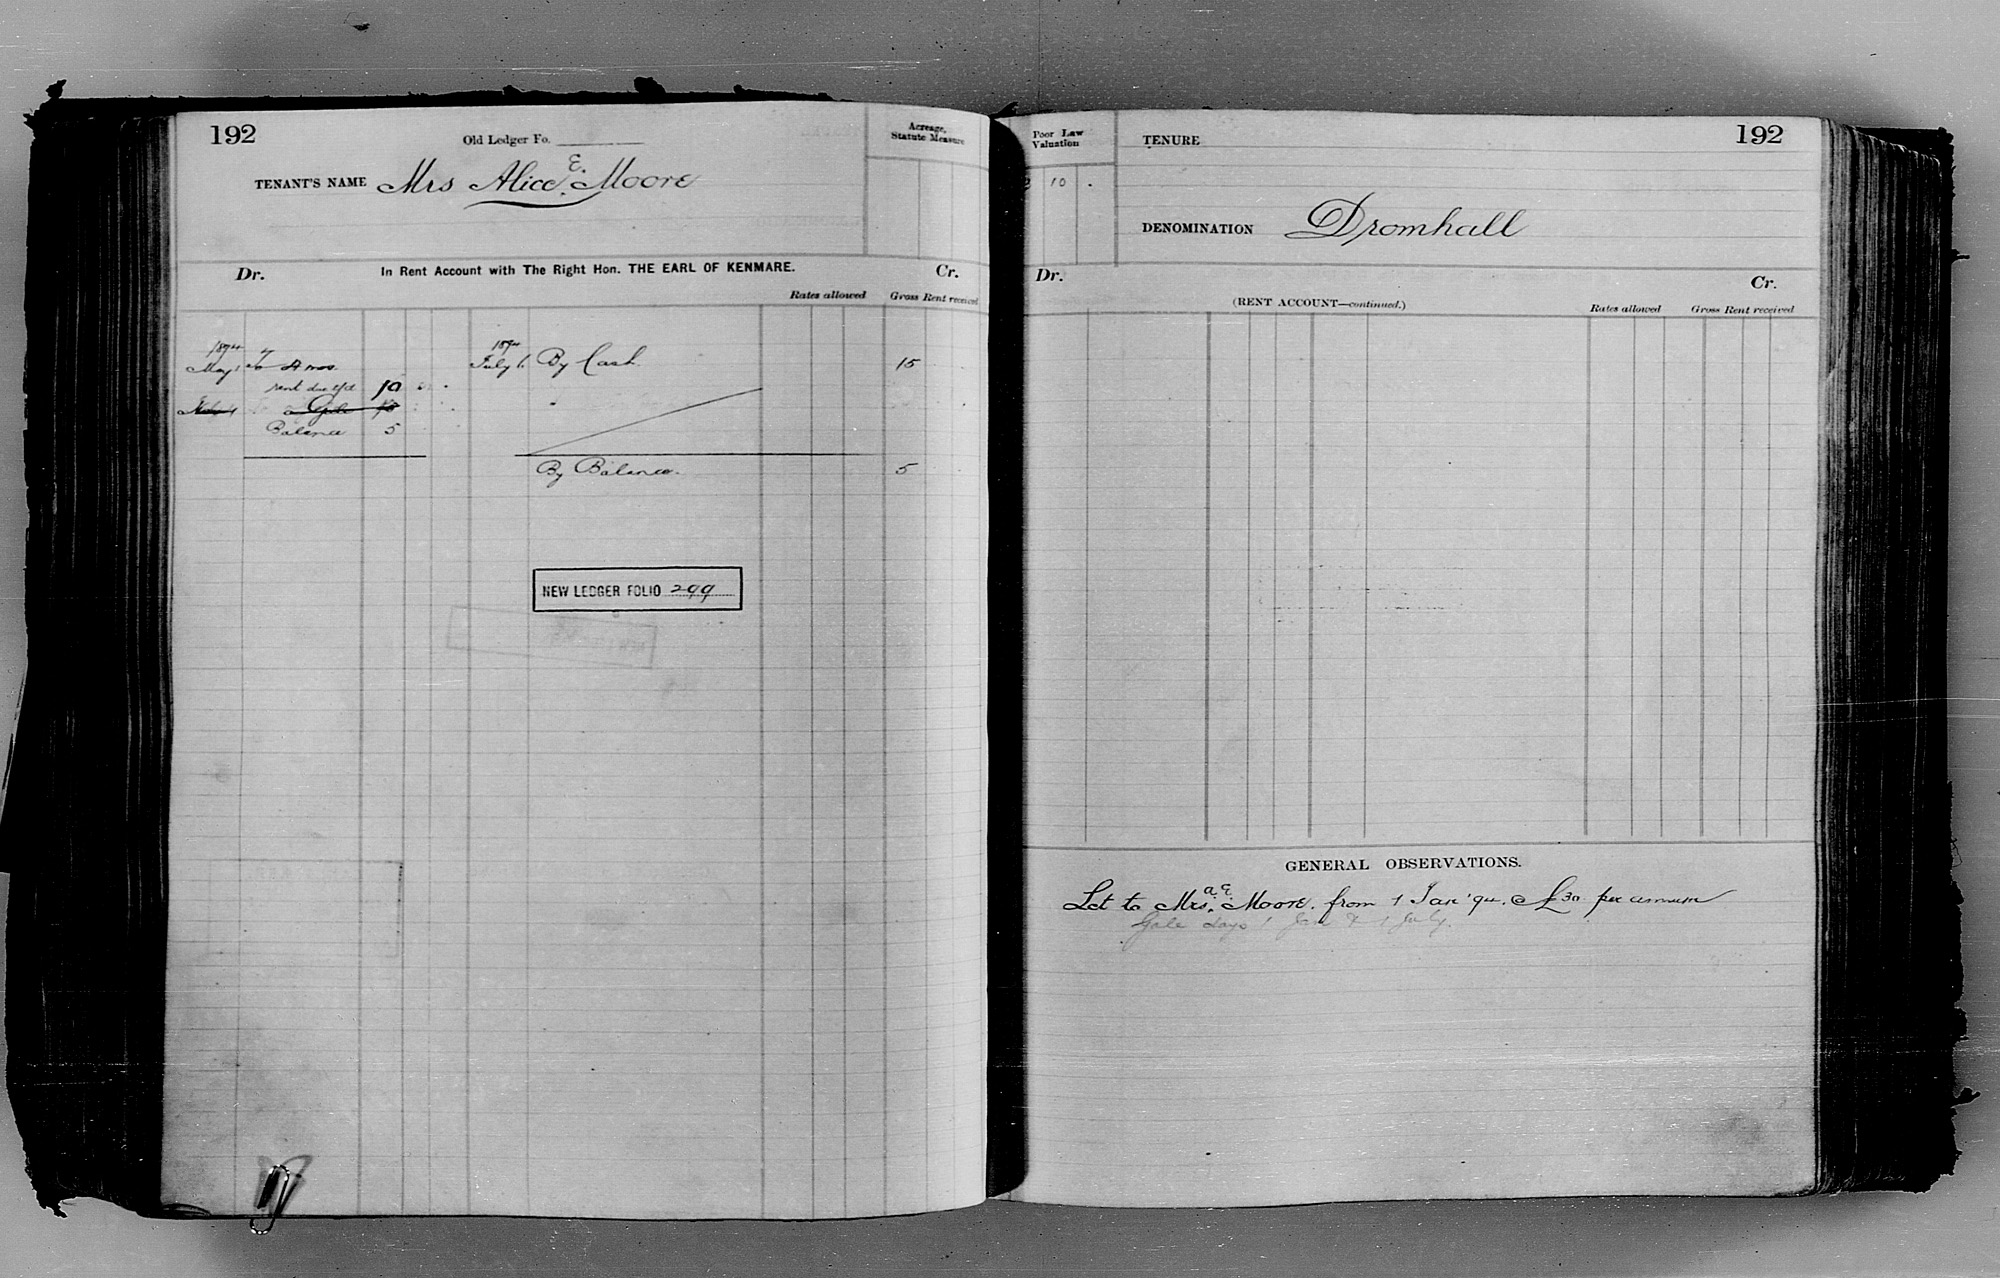 192
Old Ledger Fo.
Acreage,
Statute Measure
TENANT'S NAME Mrs Alice E. Moore
Dr. In Rent Account with The Right Hon. THE EARL OF KENMARE. Cr.
Rates allowed Gross Rent received
1894 1894
May 1 To 4 mos. July 6 By Cash 15
rent due 10
Gale
Balance 5
By Balance. 5
NEW LEDGER FOLIO 299
Poor Law
Valuation
TENURE
192
10
DENOMINATION Dromhall
Dr. Cr.
(RENT ACCOUNT—continued.) Rates allowed Gross Rent received
GENERAL OBSERVATIONS.
Let to Mrs. A. E. Moore. from 1 Jan '94. @ £30 per annum
Gale days 1 Jan & 1 July.